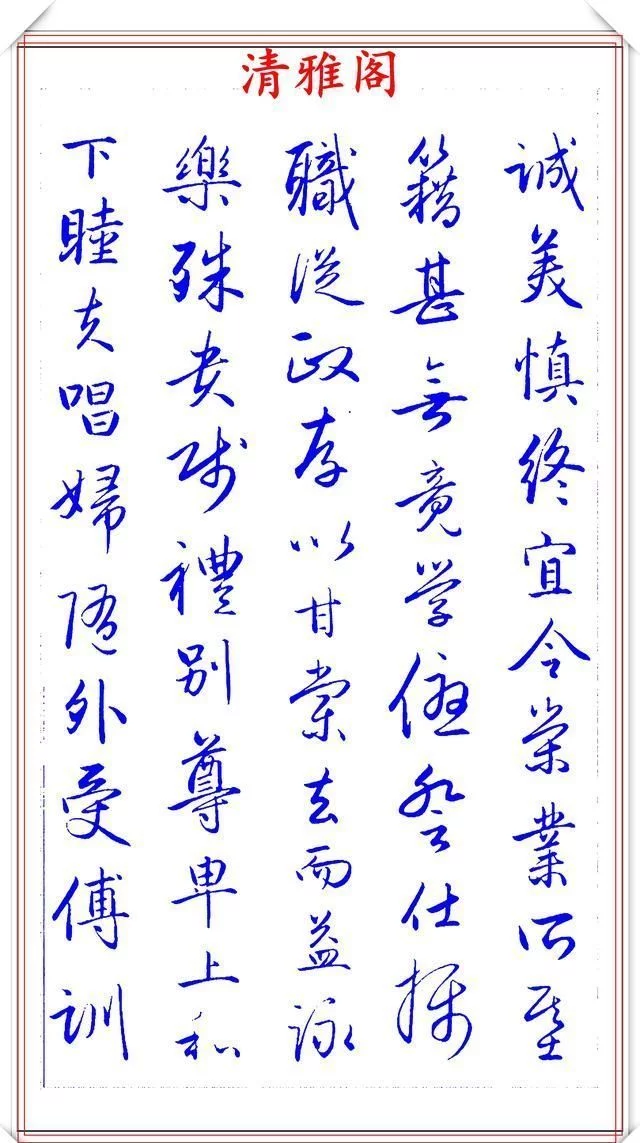 清雅阁
诚美慎终宜令荣業所基
籍甚无竟学優登仕攝
職從政存以甘棠去而益詠
樂殊贵贱禮别尊卑上和
下睦夫唱婦随外受傅訓